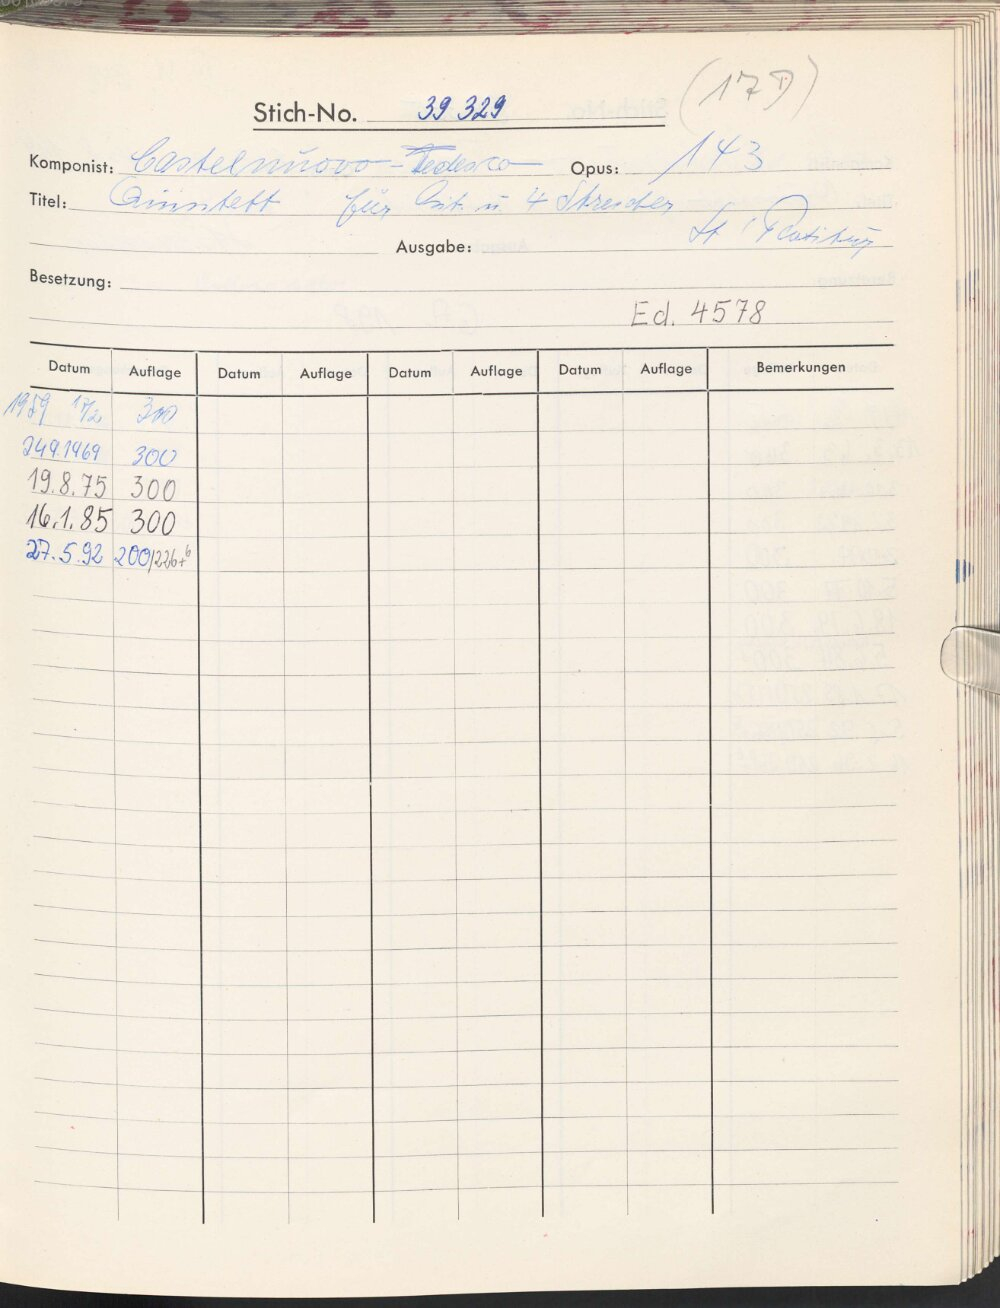 (17D)
Stich-No. 39 329
Komponist: Castelnuovo-Tedesco Opus: 143
Titel: Quintett für Git. u 4 Streicher
Ausgabe: St
Besetzung:
Ed. 4578
Datum Auflage Datum Auflage Datum Auflage Datum Auflage Bemerkungen
1959 17/2 300
24.9.1969 300
19.8.75 300
16.1.85 300
27.5.92 200/226+6